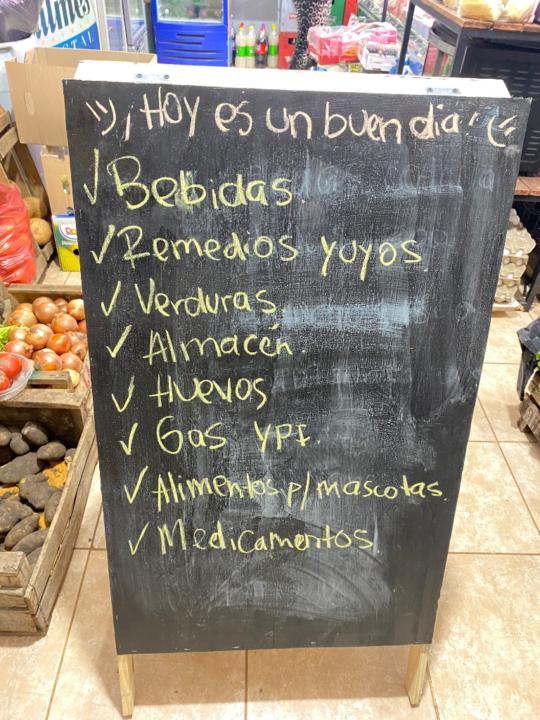 ¡Hoy es un buen dia!
✓ Bebidas.
✓ Remedios yuyos
✓ Verduras.
✓ Almacén.
✓ Huevos
✓ Gas YPF.
✓ Alimentos p/ mascotas.
✓ Medicamentos.